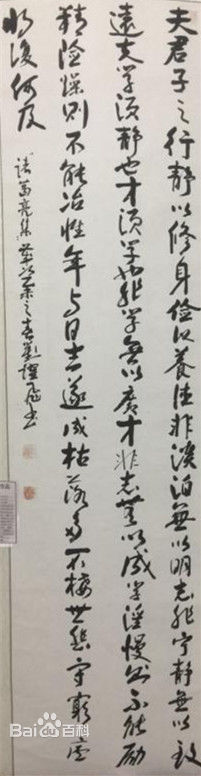 夫君子之行静以修身俭以养德非淡泊無以明志非宁静無以致
遠夫学须静也才须学也非学無以廣才非志無以成学淫慢則不能励
精险躁則不能冶性年与日去遂成枯落多不接世悲守窮廬
将復何及
诸葛亮集 之春劉 书
Bai百科